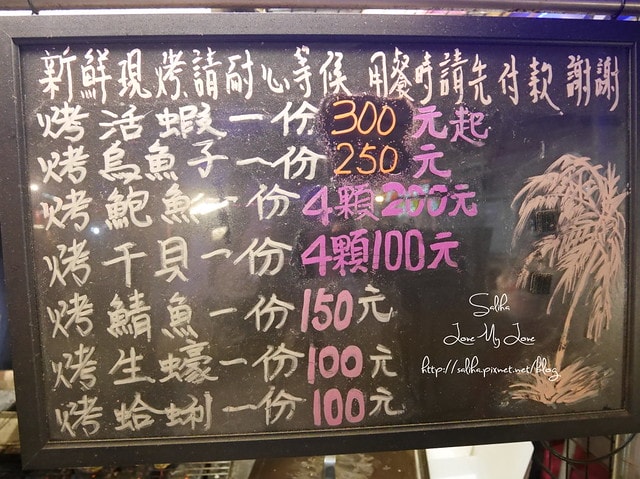 新鮮現烤請耐心等候 用餐時請先付款 謝謝
烤活蝦一份300元起
烤烏魚子一份250元
烤鮑魚一份4顆200元
烤干貝一份4顆100元
烤鯖魚一份150元
烤生蠔一份100元
烤蛤蜊一份100元
Saliha
Love My Love
http://saliha.pixnet.net/blog